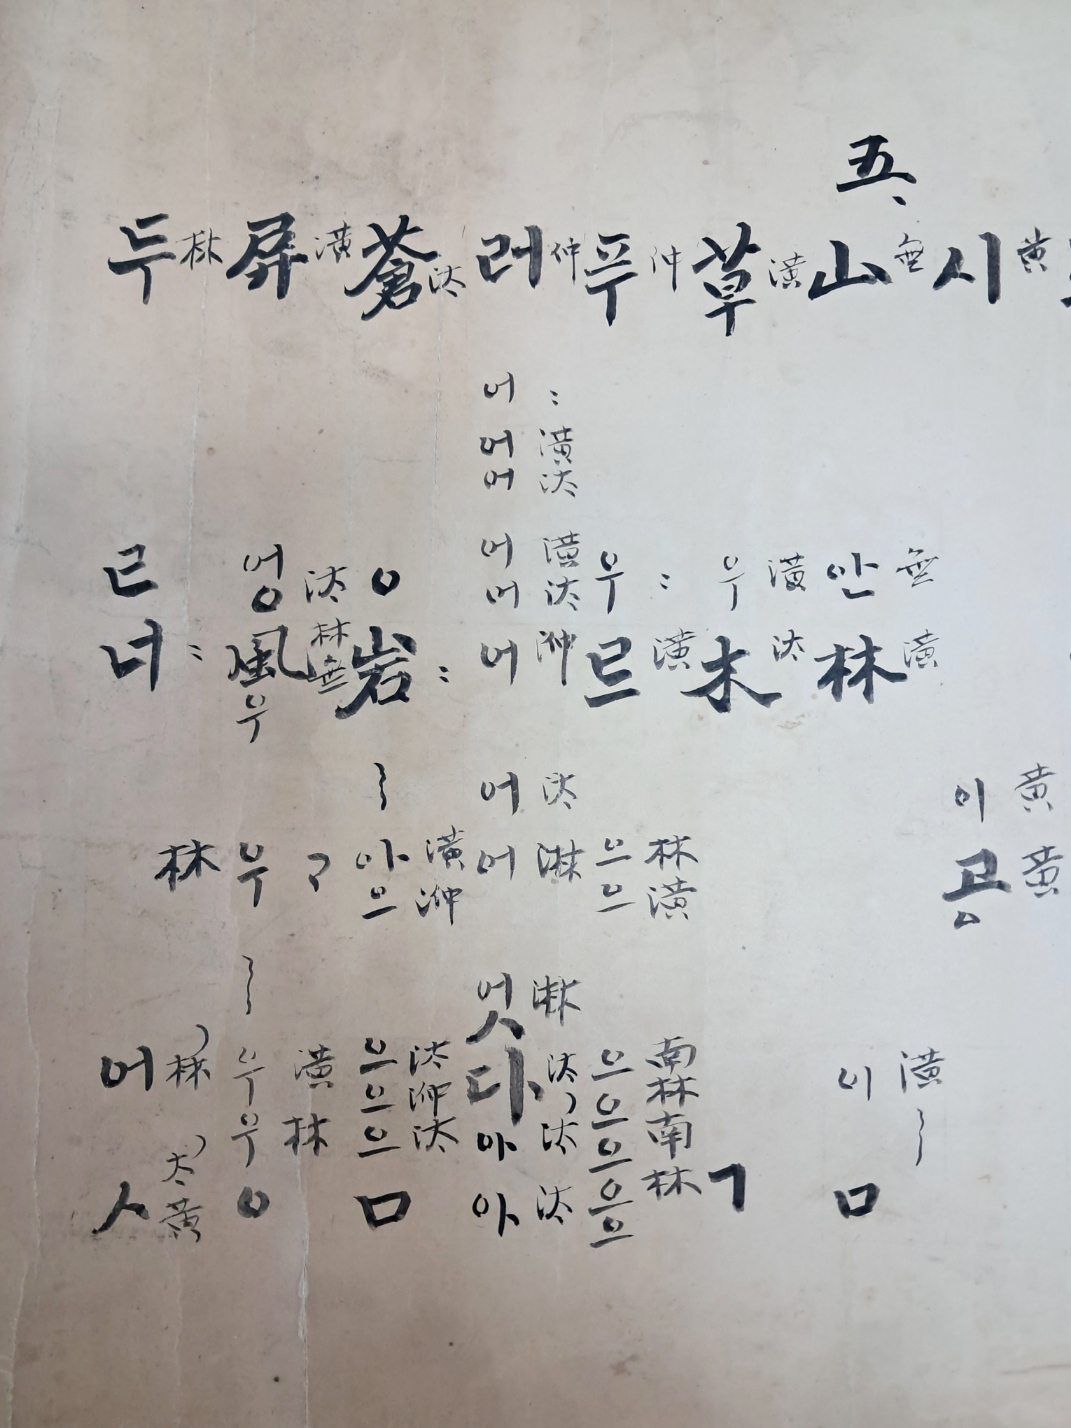 五、
시 黃
이 黃
고 黃
ㅇ
山 無
안 無
林 潢
이 潢
ㅁ
草 潢
우 潢
木 汰
ㄱ
푸 仲
우 :
르 潢
으 林
으 潢
으 南
으 林
으 南
으 林
으
러 仲
어 :
어 潢
어 汰
어 潢
어 汰
어 㳞
어 汰
어 淋
엇 淋
다 汰
아 汰
아 汰
蒼 汰
ㅇ
岩 :
아 潢
으 㳞
으 汰
으 㳞
으 汰
ㅁ
屛 潢
엉 汰
風 林 無
우
우
우 潢
우 林
ㅇ
두 林
ㄹ
너 :
林
어 林
太
ㅅ 黃